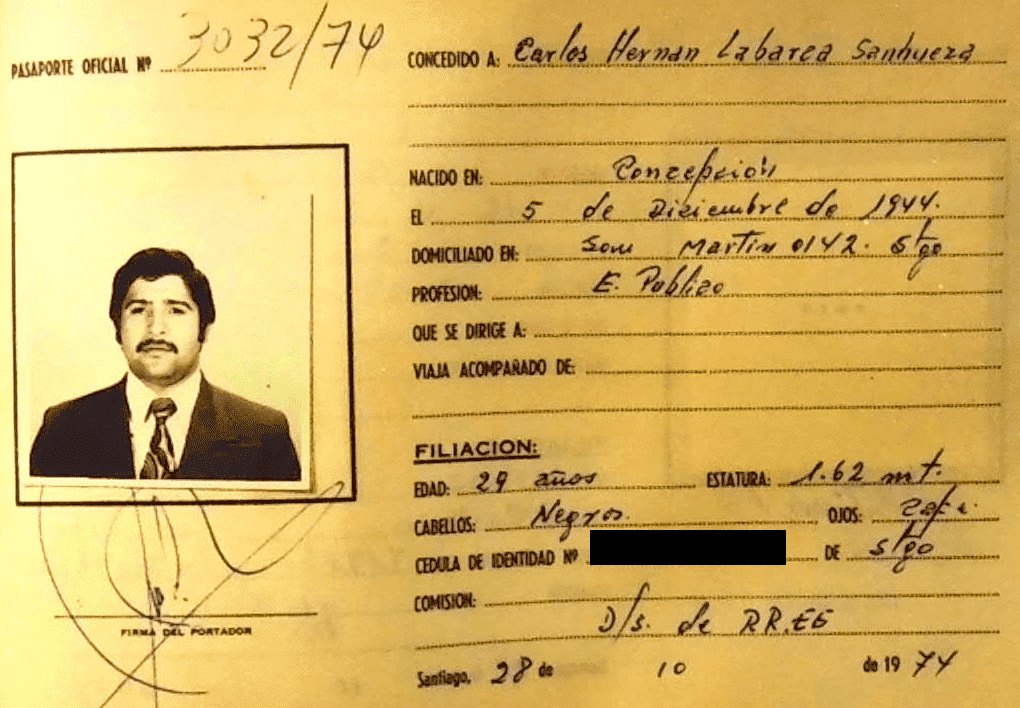 PASAPORTE OFICIAL Nº 3032/74
CONCEDIDO A: Carlos Hernan Labarca Sanhueza
NACIDO EN: Concepción
EL 5 de Diciembre de 1944.
DOMICILIADO EN: San Martin 0142. Stgo
PROFESION: E. Publico
QUE SE DIRIGE A:
VIAJA ACOMPAÑADO DE:
FILIACION:
EDAD: 29 años ESTATURA: 1.62 mt.
CABELLOS: Negros. OJOS:
CEDULA DE IDENTIDAD Nº DE Stgo
COMISION:
D/s. de RR.EE
Santiago, 28 de 10 de 19 74
FIRMA DEL PORTADOR